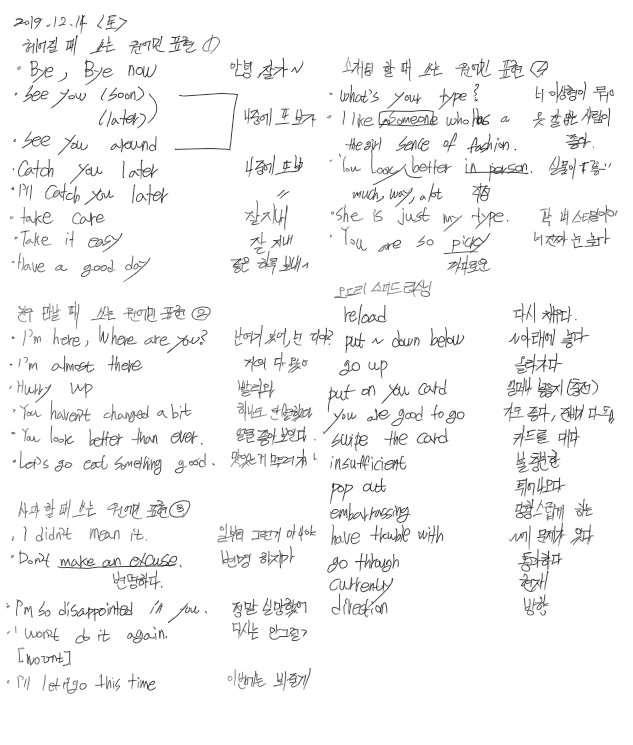 2019.12.14 <토>
헤어질 때 쓰는 원어민 표현 ①
· Bye, Bye now 안녕 잘가~
· See you (soon)
(later) 나중에 또 보자
· See you around
· Catch you later 나중에 또 봐
· I'll Catch you later "
· take care 잘 지내
· Take it easy 잘 지내
· Have a good day 좋은 하루 보내~
친구 만날 때 쓰는 원어민 표현 ②
· I'm here, Where are you? 난 여기 있어, 넌 어디야?
· I'm almost there 거의 다 왔어
· Hurry up 빨리와
· You haven't changed a bit 하나도 안 변했다
· You look better than ever. 얼굴 좋아 보인다.
· Let's go eat something good. 맛있는거 먹으러 가자
사과할 때 쓰는 원어민 표현 ③
· I didn't mean it. 일부러 그런게 아니야
· Don't make an excuse. 변명 하지마
변명하다.
· I'm so disappointed in you. 정말 실망했어
· I won't do it again. 다시는 안그럴게
[wount]
· I'll let it go this time 이번에는 봐줄게
소개팅 할 때 쓰는 원어민 표현 ④
· What's your type? 너 이상형이 뭐야
· I like someone who has a 옷 잘 입는 사람이
the girl sence of fashion. 좋다.
· You look better in person. 실물이
much, way, a lot
· She is just my type. 딱 내 스타일이야
· You are so picky 너 진짜 눈 높다
까다로운
오드리 스피드 리스닝
reload 다시 채우다.
put ~ down below ~아래에 놓다
go up 올라가다
put on you card
you are good to go 가도 좋다, 준비가 다 됨
swipe the card 카드를 대다
insufficient 불충분한
pop out 튀어나오다
embarrassing 당황스럽게 하는
have trouble with ~에 문제가 있다
go through 통과하다
currently 현재
direction 방향